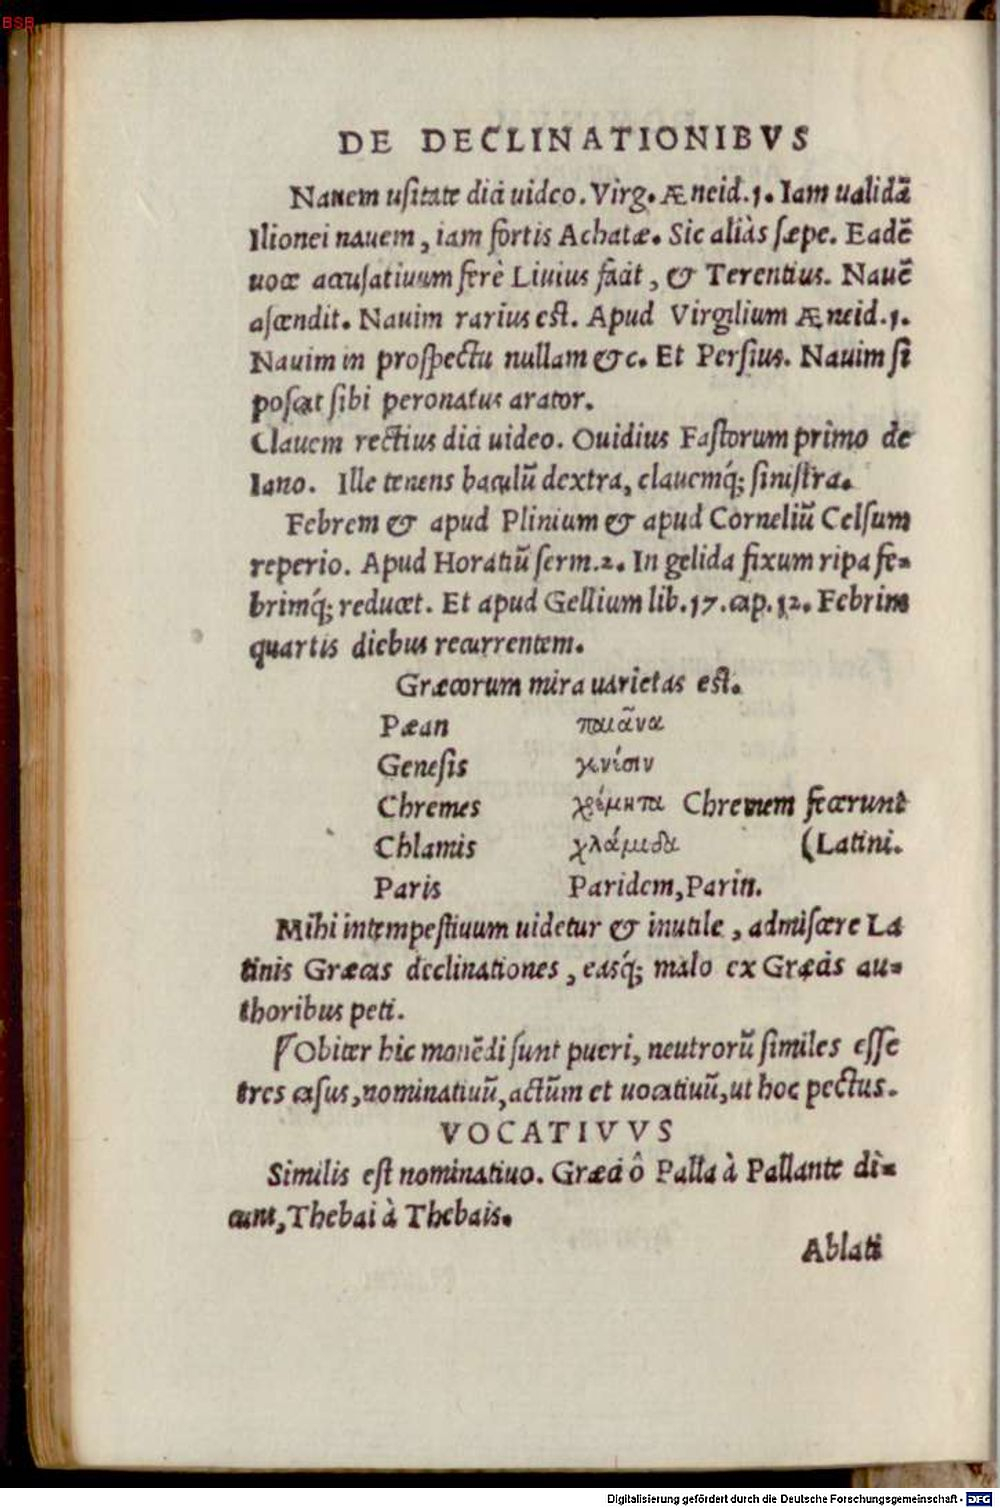 BSB
DE DECLINATIONIBVS
Nauem usitate dici uideo. Virg. Æneid.1. Iam ualidā
Ilionei nauem, iam fortis Achatæ. Sic aliàs sæpe. Eadē
uoce accusatiuum ferè Liuius facit, & Terentius. Nauē
ascendit. Nauim rarius est. Apud Virgilium Æneid.1.
Nauim in prospectu nullam &c. Et Persius. Nauim si
poscat sibi peronatus arator.
Clauem rectius dici uideo. Ouidius Fastorum primo de
Iano. Ille tenens baculū dextra, clauemq́; sinistra.
Febrem & apud Plinium & apud Corneliū Celsum
reperio. Apud Horatiū serm.2. In gelida fixum ripa fe-
brimq́; reducet. Et apud Gellium lib.17.cap.12. Febrim
quartis diebus recurrentem.
Græcorum mira uarietas est.
Pæan παιᾶνα
Genesis γενέσιν
Chremes χρέμητα Chremem fecerunt
Chlamis χλάμιδα (Latini.
Paris Paridem, Parin.
Mihi intempestiuum uidetur & inutile, admiscere La
tinis Græcas declinationes, easq́; malo ex Græcis au-
thoribus peti.
Obiter hic monēdi sunt pueri, neutrorū similes esse
tres casus, nominatiuū, actūm et uocatiuū, ut hoc pectus.
VOCATIVVS
Similis est nominatiuo. Græci ô Palla à Pallante di-
cunt, Thebai à Thebais.
Ablati
Digitalisierung gefördert durch die Deutsche Forschungsgemeinschaft - DFG